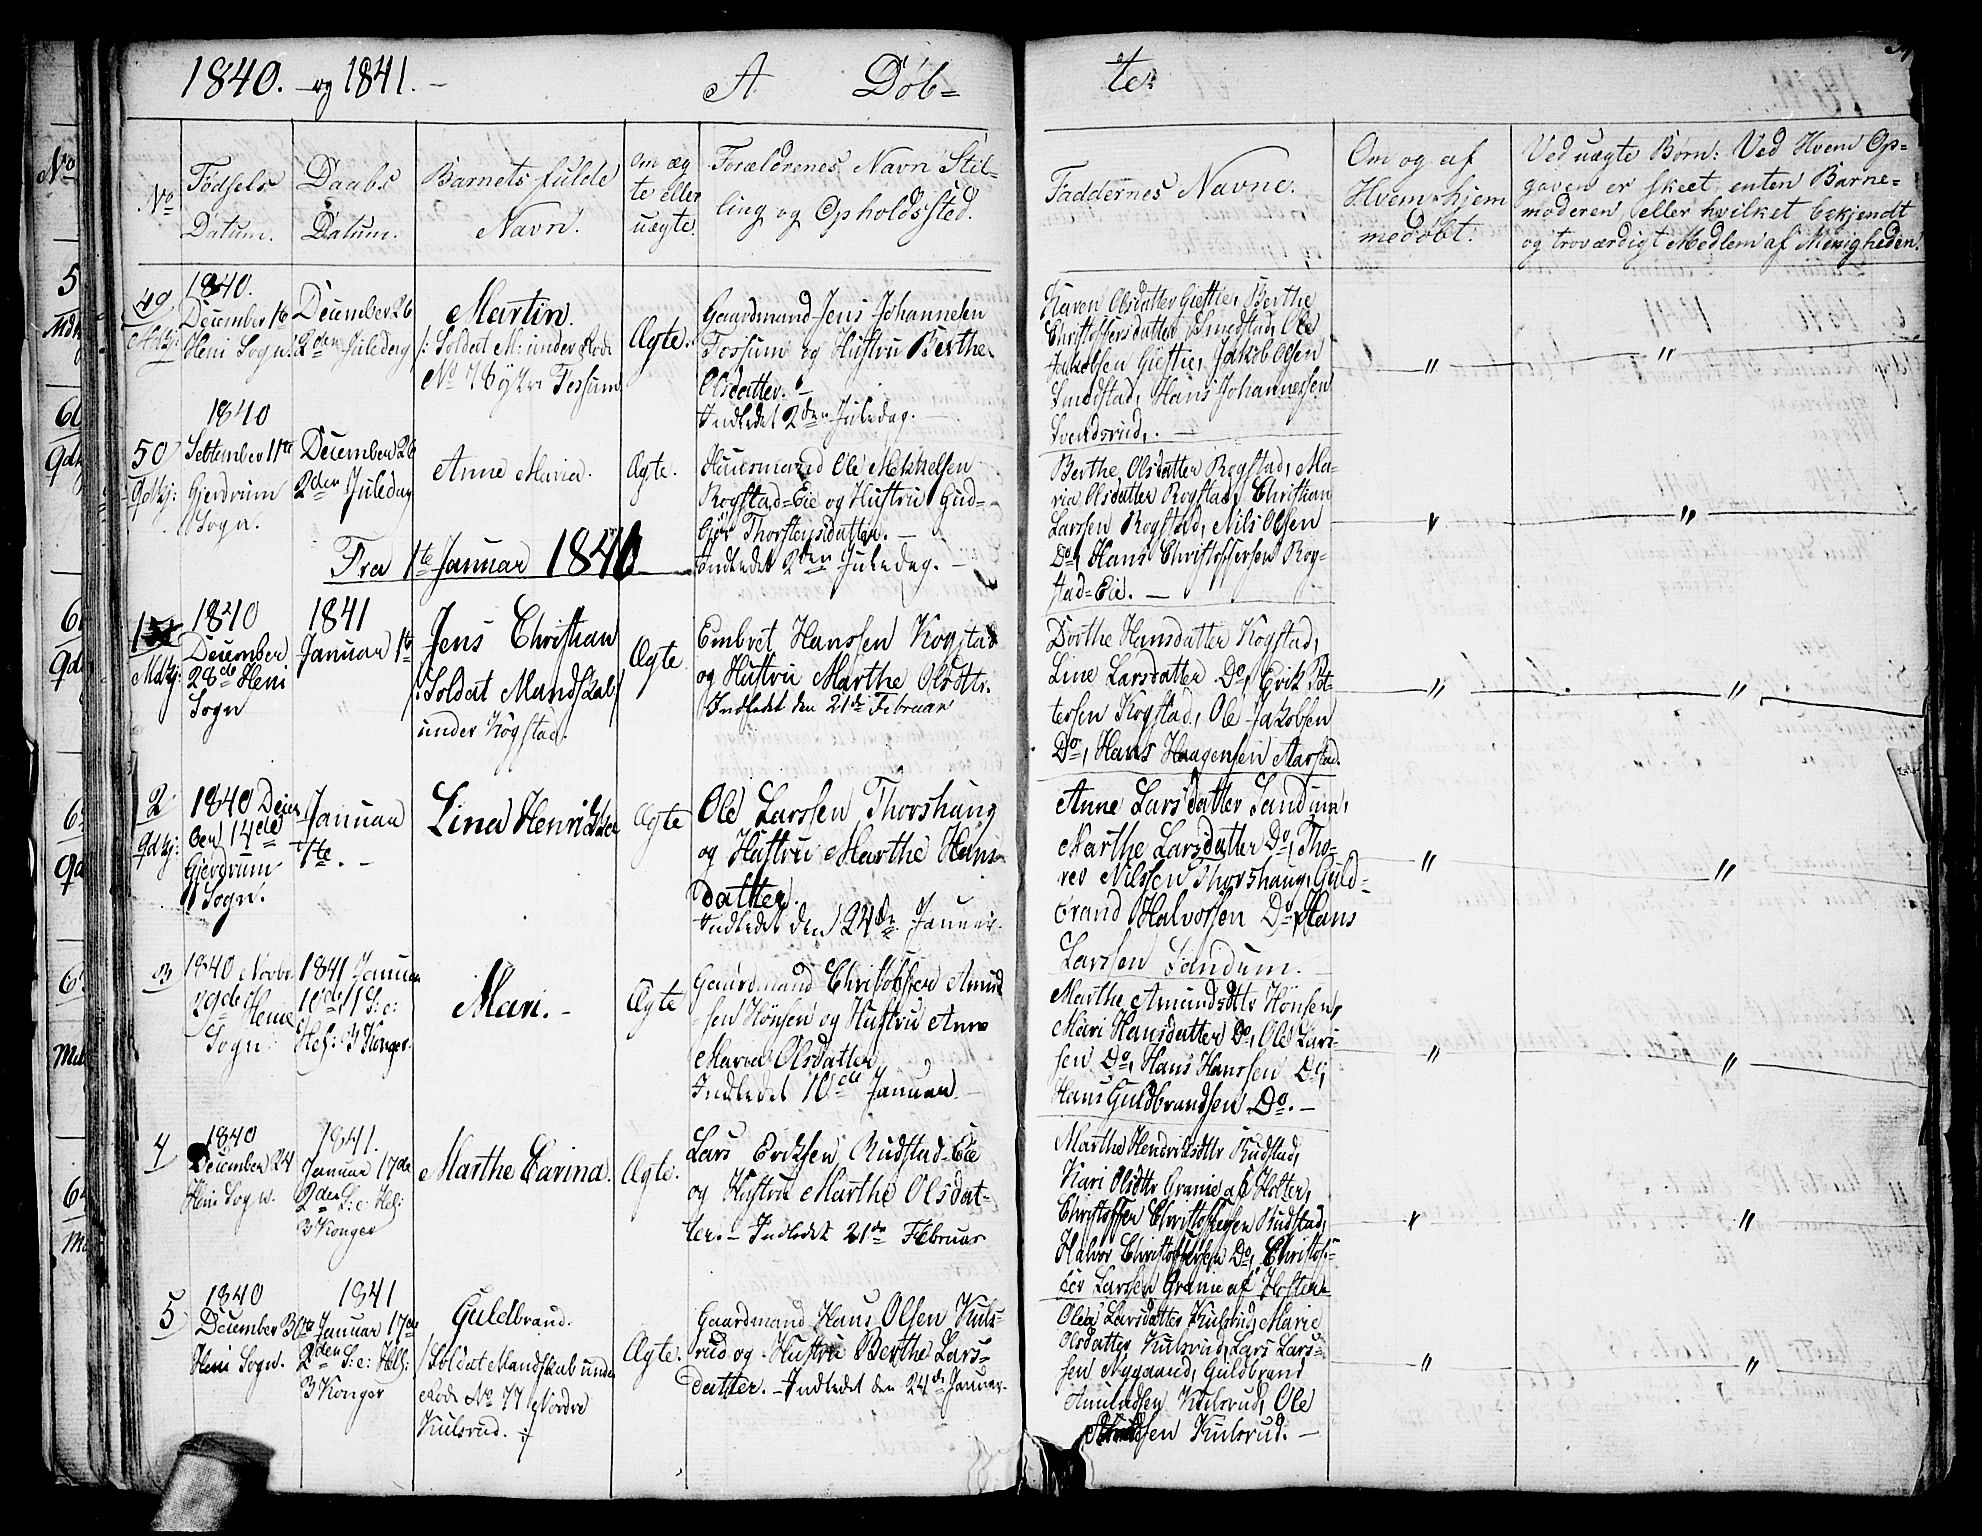 1840. og 1841. – A Døb= ter
No
Fødsels Datum.
Daabs Datum.
Barnets fulde Navn.
om æg
te eller
uægte.
Forældrenes Navn Stil=
ling og Opholdssted.
Faddernes Navne.
Om og af
Hvem hjem
medøbt.
Ved uægte Børn: Ved Hvem Op=
gaven er skeet, enten Barne=
moderen, eller hvilket bekjendt
og troværdigt Medlem af Menigheden.
49
Mdkj:
1840.
December 1te
Heni Sogn.
December 26
2den Juledag
Martin.
/: Soldat M: under Rode
No 76 Fossum
Ægte.
Gaardmand Jens Johannesen
Fossum og Hustru Berthe
Olsdatter. –
Indledet 2den Juledag. –
Karen Olsdatter Giestie, Berthe
Christoffersdatter Smedstad, Ole
Jakobsen Giestie, Jakob Olsen
Smedstad, Hans Johannessen
Svendsrud. –
"
"
50
Qdkj:
1840
September 11te
Gjerdrum
Sogn.
December 26
2den Juledag
Anne Maria.
Ægte.
Huusmand Ole Mikkelsen
Rogstad=Eie og Hustru Gud=
bjør Thorsteinsdatter. –
Indledet 2den Juledag. –
Berthe Olsdatter Rogstad, Ma=
ria Olsdatter Rogstad, Christian
Larssen Rogstad, Nils Olsen
Do, Hans Christoffersen Rog=
stad=Eie. –
"
"
Fra 1te Januar 1840
1
Mdkj:
1840
December
28de Heni
Sogn
1841
Januar 1te
Jens Christian
/: Soldat Mandskab
under Kogstad.
Ægte
Embret Hanssen Kogstad
og Hustru Marthe Olsdttr.
Indledet den 21de Februar
Dorthe Hansdatter Kogstad,
Line Larsdatter Do, Erik Pet=
tersen Kogstad, Ole Jakobsen
Do, Hans Haagensen Aarstad.
"
"
2
Qdkj:
1840 Decem
ber 14de
Gjerdrum
Sogn.
Januar
1te. –
Lina Henrikke
Ægte
Ole Larssen Thorshaug
og Hustru Marthe Hans
datter.
Indledet den 24de Januar.
Anne Larsdatter Sandum,
Marthe Larsdatter Do, Tho=
res Nilssen Thorshaug, Guld=
brand Halvorsen Do, Hans
Larssen Sandum. –
"
"
3
1840 Novbr
29de Heni
Sogn
1841 Januar
10de 1 S: e:
Hel: 3 Konger.
Mari. –
Ægte
Gaardmand Christoffer Amund
sen Hønsen og Hustru Anne
Maria Olsdatter
Indledet 10de Januar –
Marthe Amundsdttr Hønsen,
Mari Hansdatter Do, Ole Lars=
sen Do, Hans Hanssen Do,
Hans Guldbrandsen Do. –
"
"
4
1840
December 24
Heni Sogn.
1841.
Januar 17de
2den S: e: Hel:
3 Konger
Marthe Carina.
Ægte.
Lars Eriksen Rudstad=Eie
og Hustru Marthe Olsdat=
ter. – Indledet 21de Februar
Marthe Hendriksdttr Rudstad,
Kari Olsdttr Granie af Holter,
Christoffer Christoffersen Rudstad,
Halvor Christoffersen Do, Christof=
fer Larssen Granie af Holter
"
"
5
1840
December 30te
Heni Sogn.
1841
Januar 17de
2den S: e: Hel:
3 Konger
Guldbrand.
/: Soldat Mandskab under
Rode No 77 Nordre
Kulsrud. :/
Ægte.
Gaardmand Hans Olsen Kuls=
rud og Hustru Berthe Lars=
datter. – Indledet den 24de Januar.
Olea Larsdatter Kulsrud, Marie
Olsdatter Kulsrud, Lars Lars=
sen Nygaard, Guldbrand
Amundsen Kulsrud, Ole
Kulsrud. –
"
"